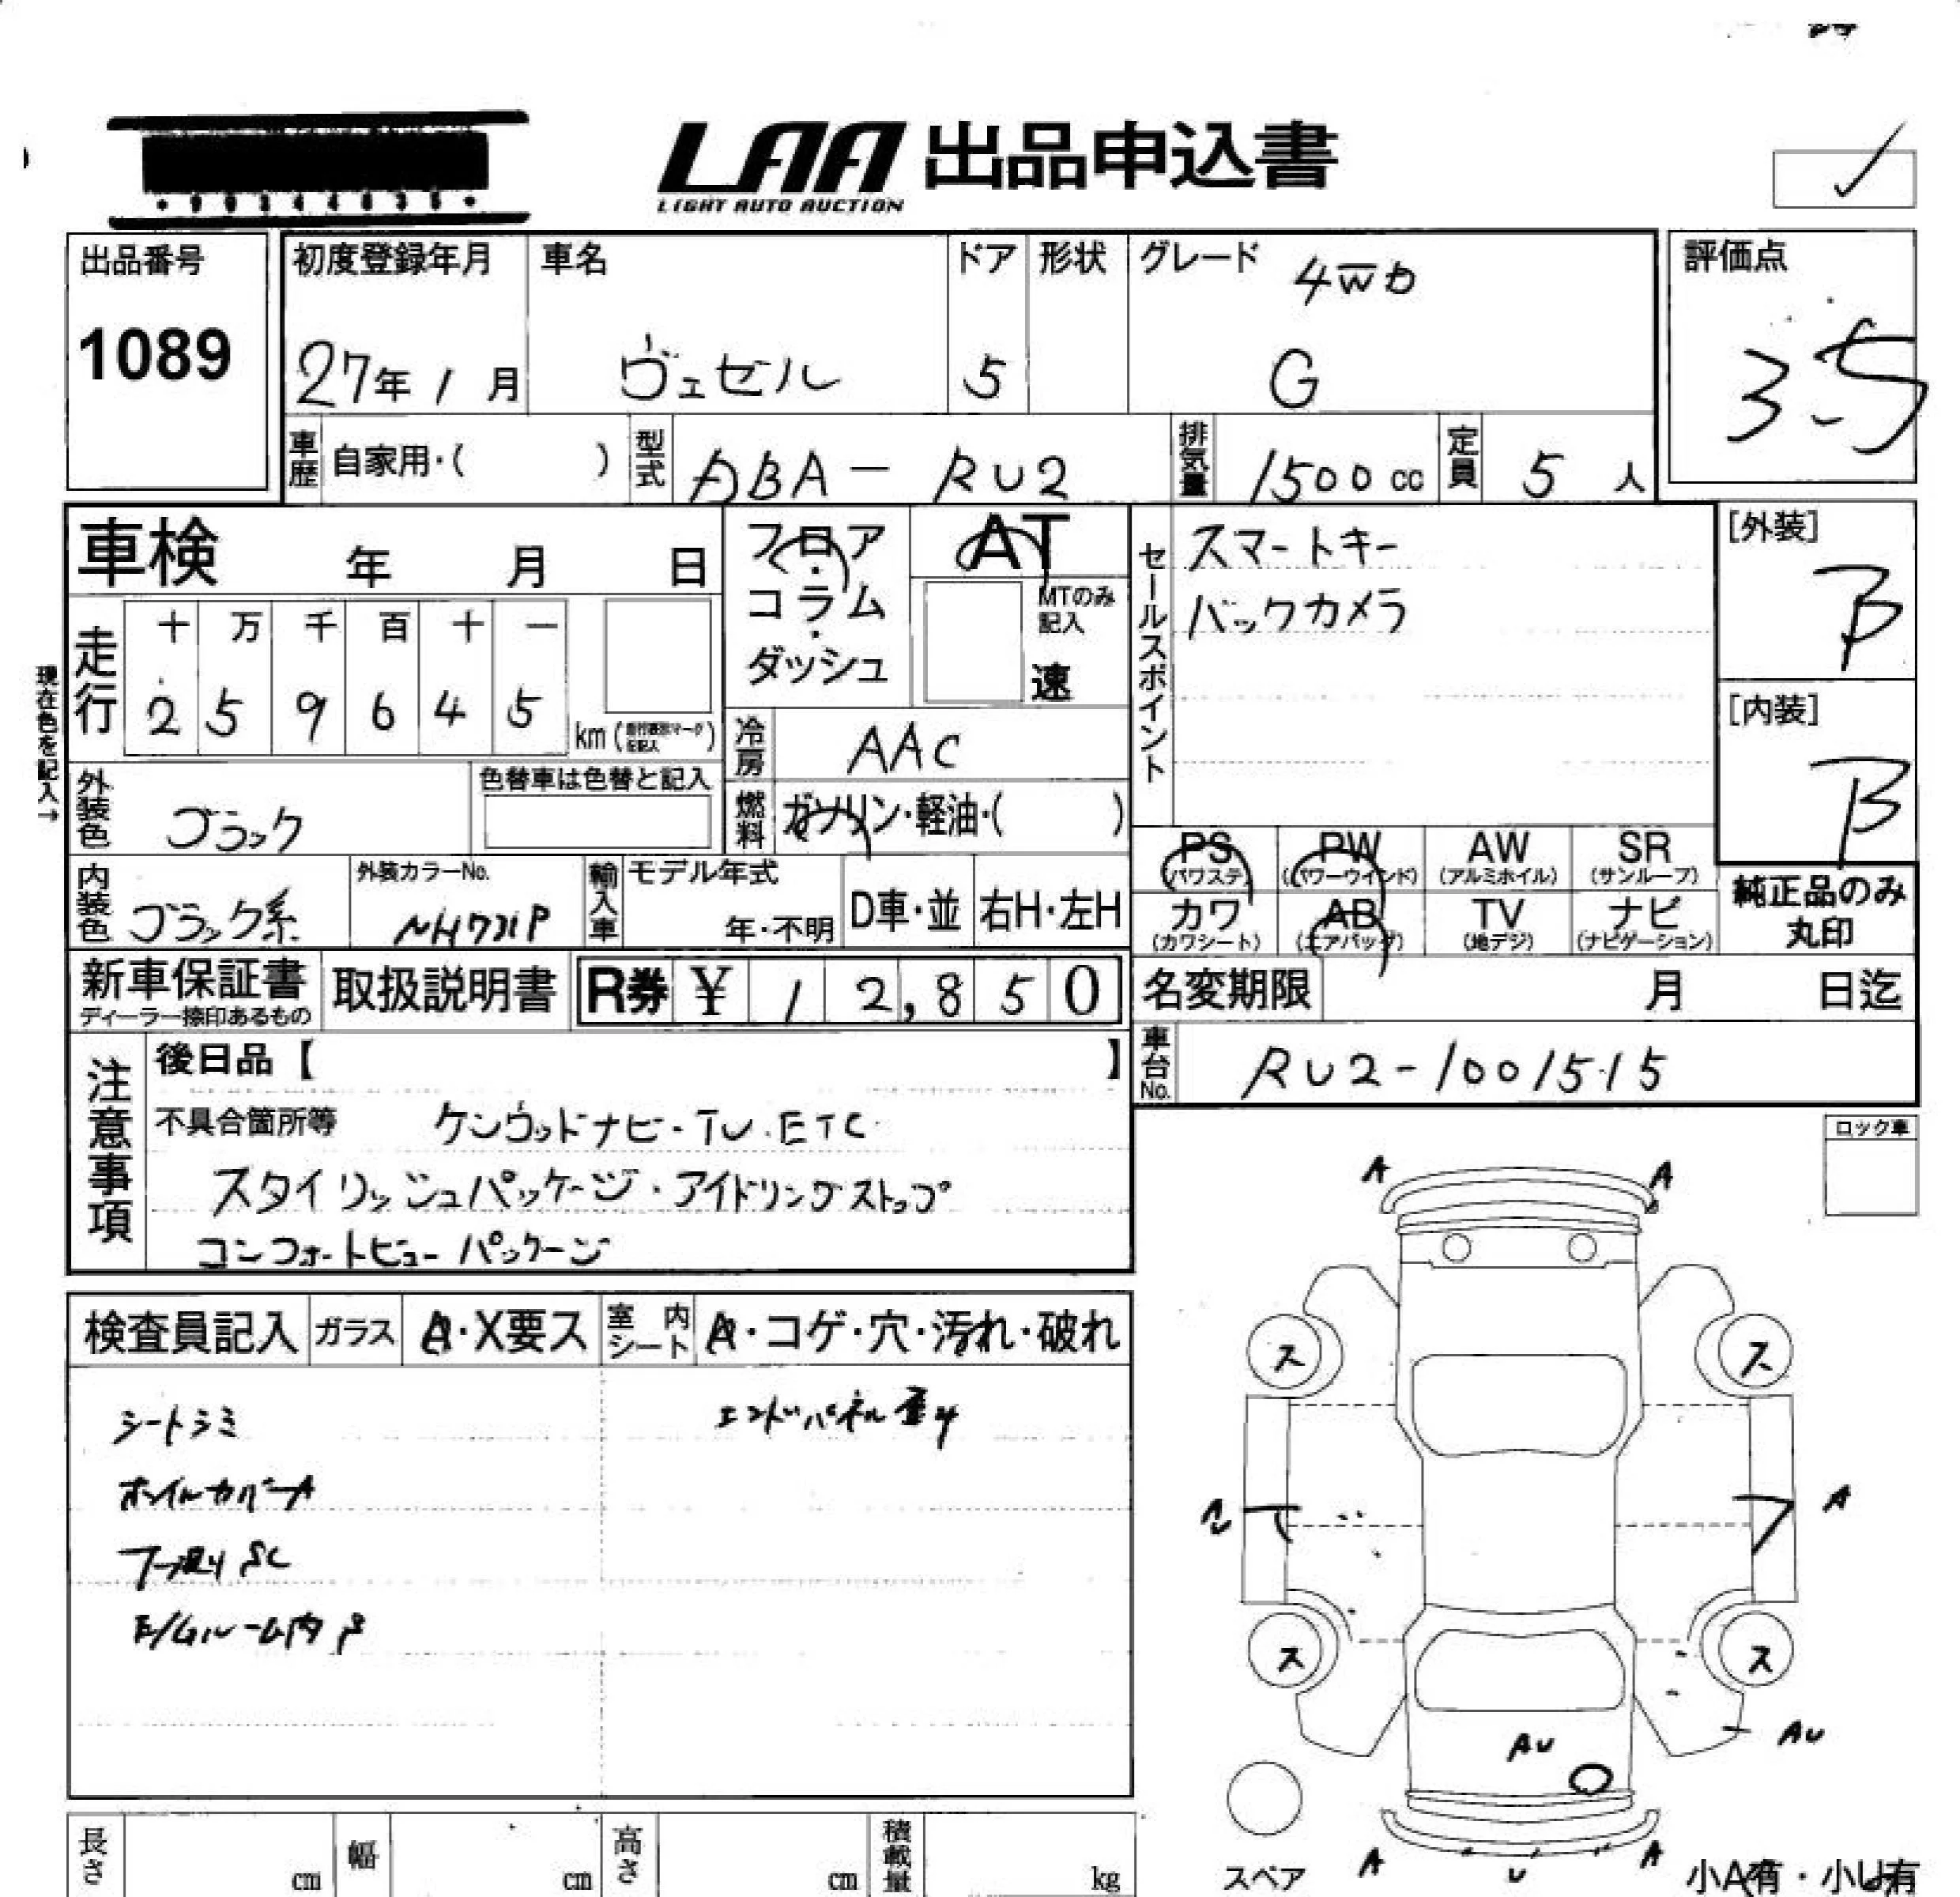 LAA 出品申込書
LIGHT AUTO AUCTION
出品番号
1089
初度登録年月
27年 1月
車名
ヴェゼル
ドア
5
形状
グレード
4WD
G
評価点
3.5
車歴
自家用・( )
型式
ABA-RU2
排気量
1500cc
定員
5人
車検 年 月 日
フロア・コラム・ダッシュ
AT
MTのみ記入
速
セールスポイント
スマートキー
バックカメラ
[外装]
B
[内装]
B
現在色を記入→
走行
十 万 千 百 十 一
2 5 9 6 4 5
km
冷房
AAC
外装色
ブラック
色替車は色替と記入
燃料
ガソリン・軽油・( )
内装色
ブラック系
外装カラーNo.
NH731P
輸入車
モデル年式
年・不明
D車・並
右H・左H
PS
(パワステ)
PW
(パワーウインド)
AW
(アルミホイル)
SR
(サンルーフ)
カワ
(カワシート)
AB
(エアバッグ)
TV
(地デジ)
ナビ
(ナビゲーション)
純正品のみ
丸印
新車保証書
ディーラー捺印あるもの
取扱説明書
R券 ¥ 12,850
名変期限 月 日迄
車台No.
RU2-1001515
注意事項
後日品【 】
不具合箇所等 ケンウッドナビ・TV.ETC
スタイリッシュパッケージ・アイドリングストップ
コンフォートビューパッケージ
ロック車
検査員記入
ガラス
A・X要ス
室内シート
A・コゲ・穴・汚れ・破れ
シートシミ
エンドパネル歪み
ホイルカバーA
E/Gルーム内
A
A
ス
ス
A
ス
ス
AU
AU
A
U
A
スペア
小A有・小U有
長さ cm
幅 cm
高さ cm
積載量 kg